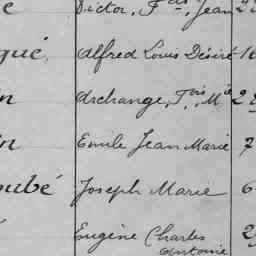 e Victor, F^d, Jean 2
qué Alfred Louis Désiré 16
n Archange, F^ois, M^ie 2
in Emile Jean Marie 7
oubé Joseph Marie 6
Eugène Charles 2
Antoine